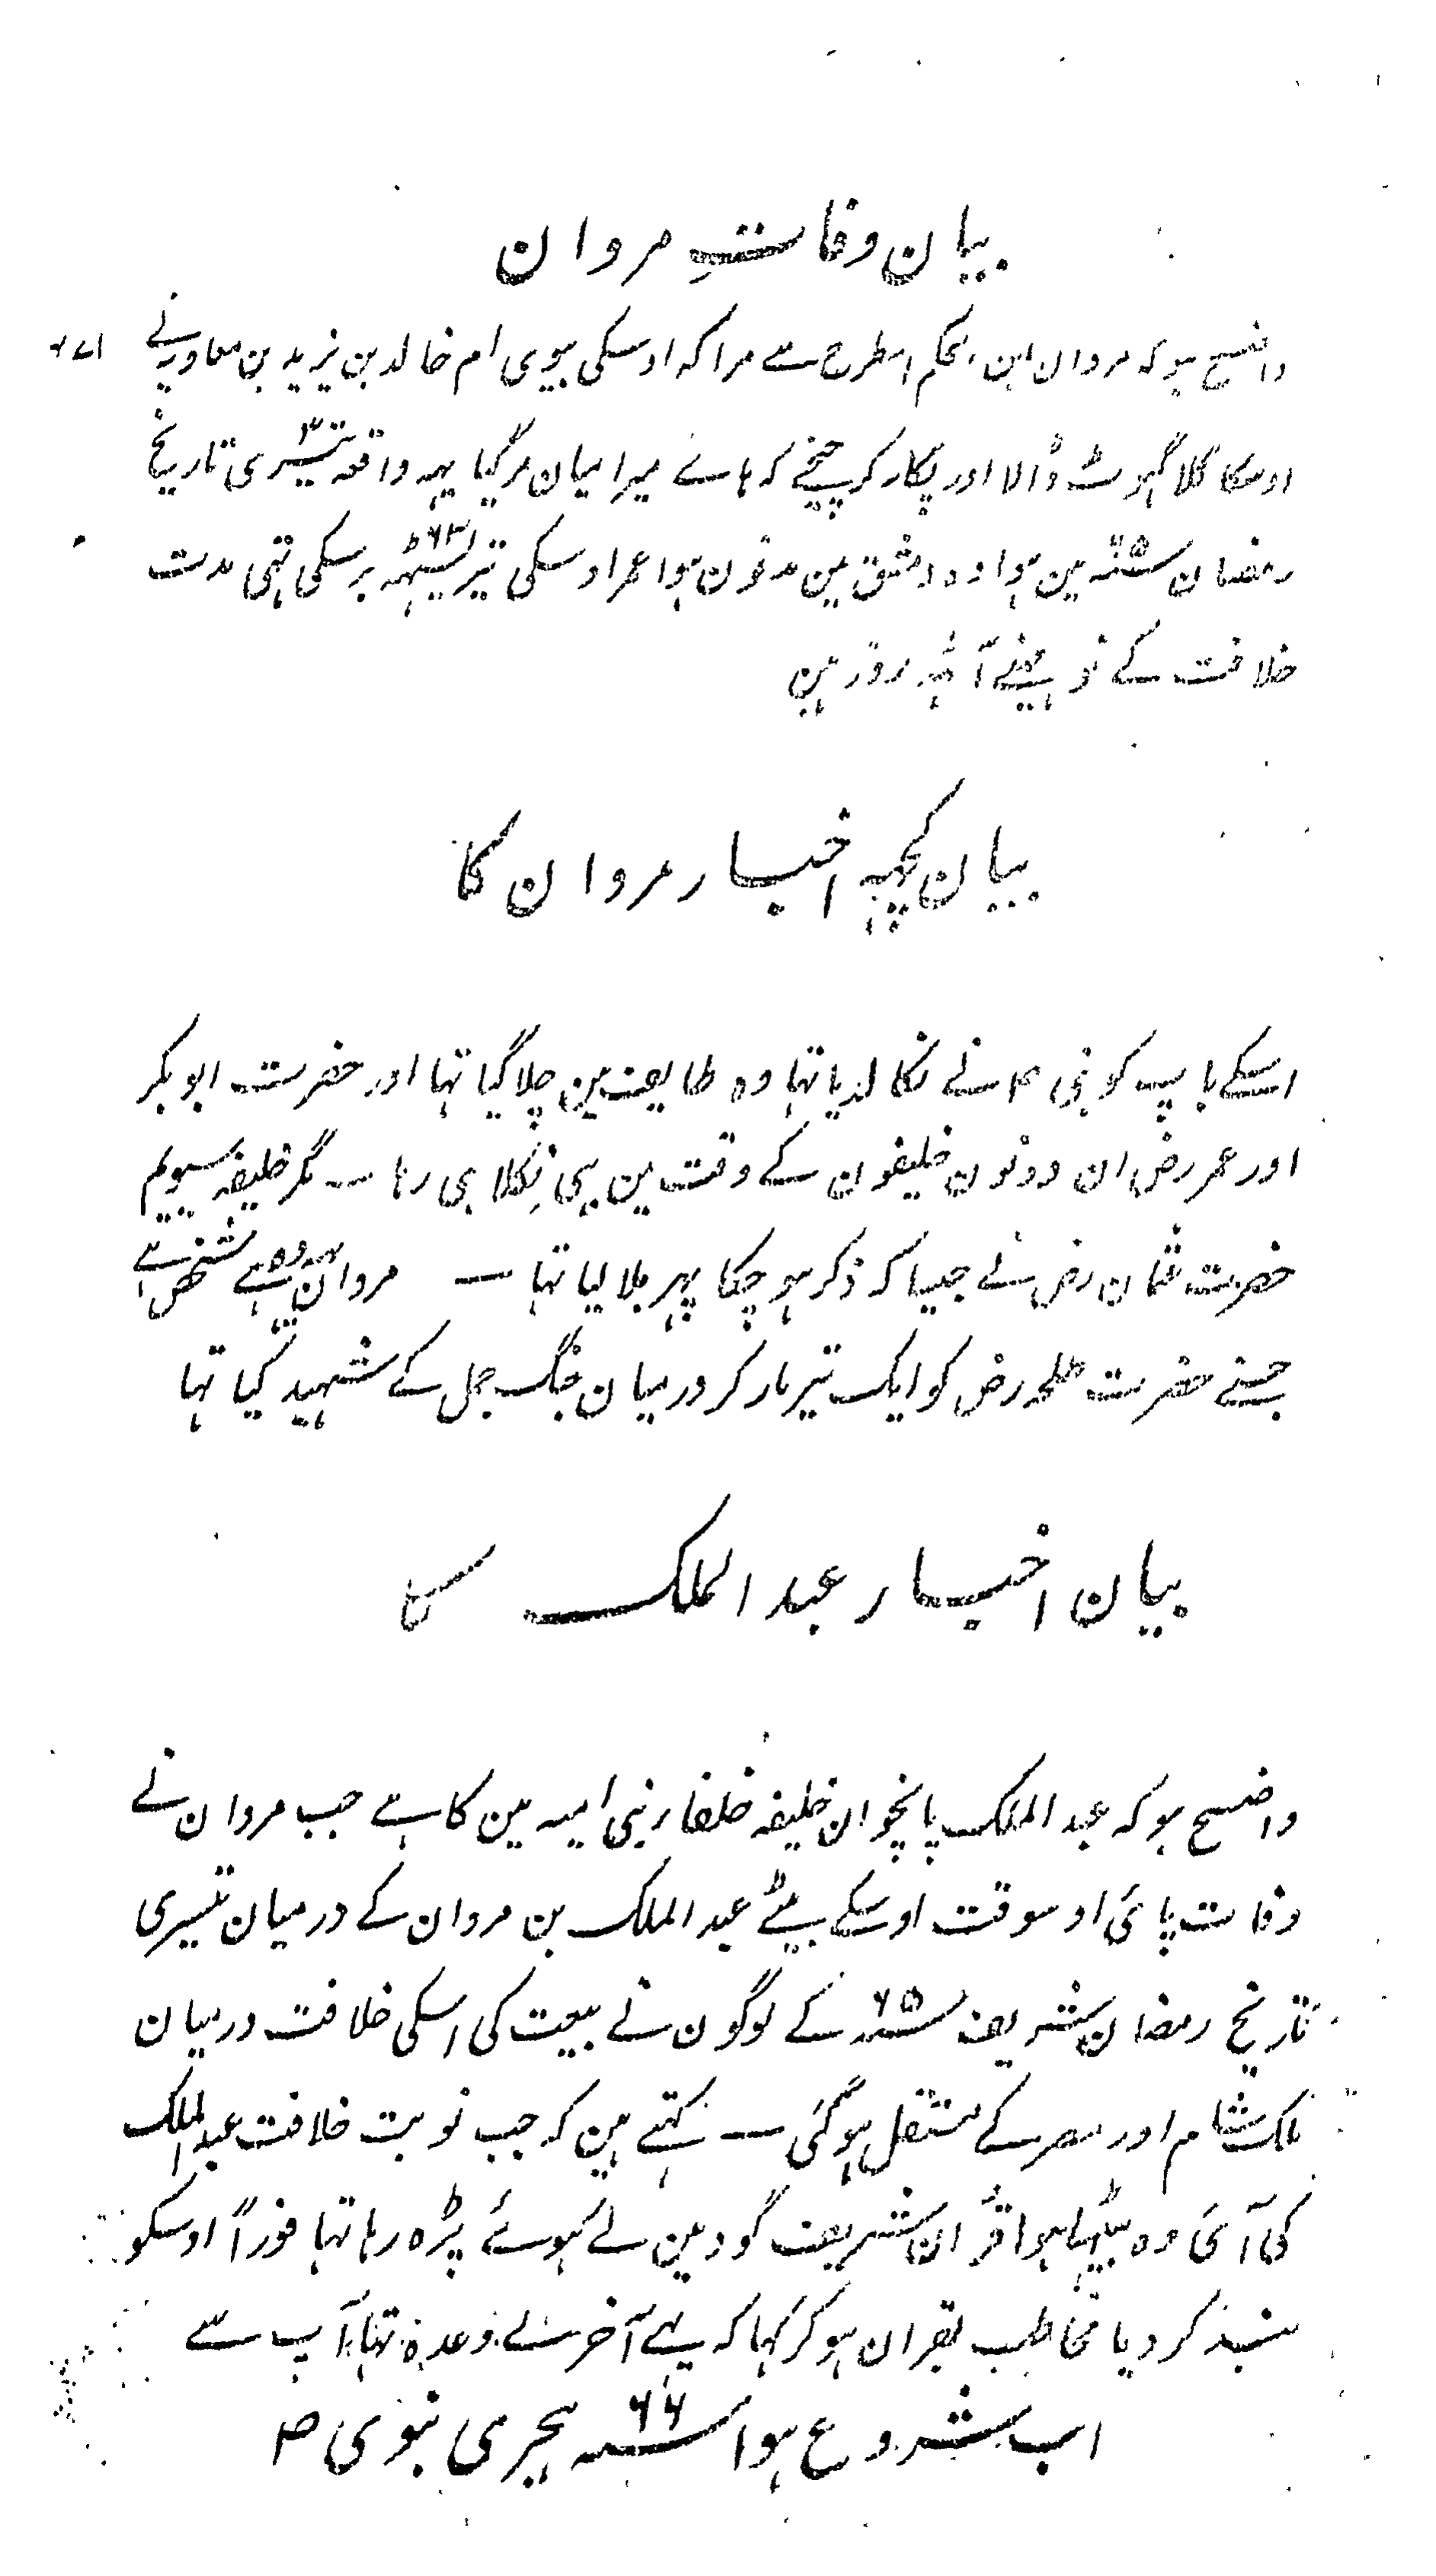 بیان وفاتِ مروان
واضح ہو کہ مروان ابن حکم اسطرح سے مرا کہ اوسکی بیوی ام خالد بن یزید بن معاویہ نے
اوسکا گلا گہوٹ ڈالا اور پکار کر چیخے کہ ہائے میرا میان مرگیا یہہ واقعہ تیسری ۳ تاریخ
رمضان سنہ ۶۵ مین ہوا وہ دمشق مین مدفون ہوا عمر اوسکی تریسٹہہ ۶۳ برسکی تہی مدت
خلافت کے نو مہینے آٹہہ روز ہین
بیان کچہہ اخبار مروان کا
اسکے باپ کو نبی ص نے نکالدیا تہا وہ طایف مین چلا گیا تہا اور حضرت ابوبکر
اور عمر رض ان دونون خلیفون کے وقت مین بہی نِکلا ہی رہا — مگر خلیفہ سیویم
حضرت عثمان رض نے جیسا کہ ذکر ہو چکا پہر بلا لیا تہا — مروان یہہ وہے شخص ہے
جسنے حضرت طلحہ رض کو ایک تیر مار کر درمیان جنگ جمل کے شہید کیا تہا
بیان اخبار عبد الملک کا
واضح ہو کہ عبد الملک پانچوان خلیفہ خلفاء بنی امیہ مین کا ہے جب مروان نے
وفات پائی اوسوقت اوسکے بیٹے عبد الملک بن مروان کے درمیان تیسری
تاریخ رمضان شریف سنہ ۶۵ کے لوگون نے بیعت کی اسکی خلافت درمیان
ملک شام اور مصر کے منتقل ہوگئی — کہتے ہین کہ جب نوبت خلافت عبد الملک
کی آئی وہ بیٹہا ہوا قرآن شریف گود مین لئے ہوئے پڑہ رہا تہا فوراً اوسکو
بند کر دیا مخاطب بقران ہو کر کہا کہ یہے آخرے وعدہ تہا آپ سے
اب شروع ہوا سنہ ۶۶ ہجری نبوی ص